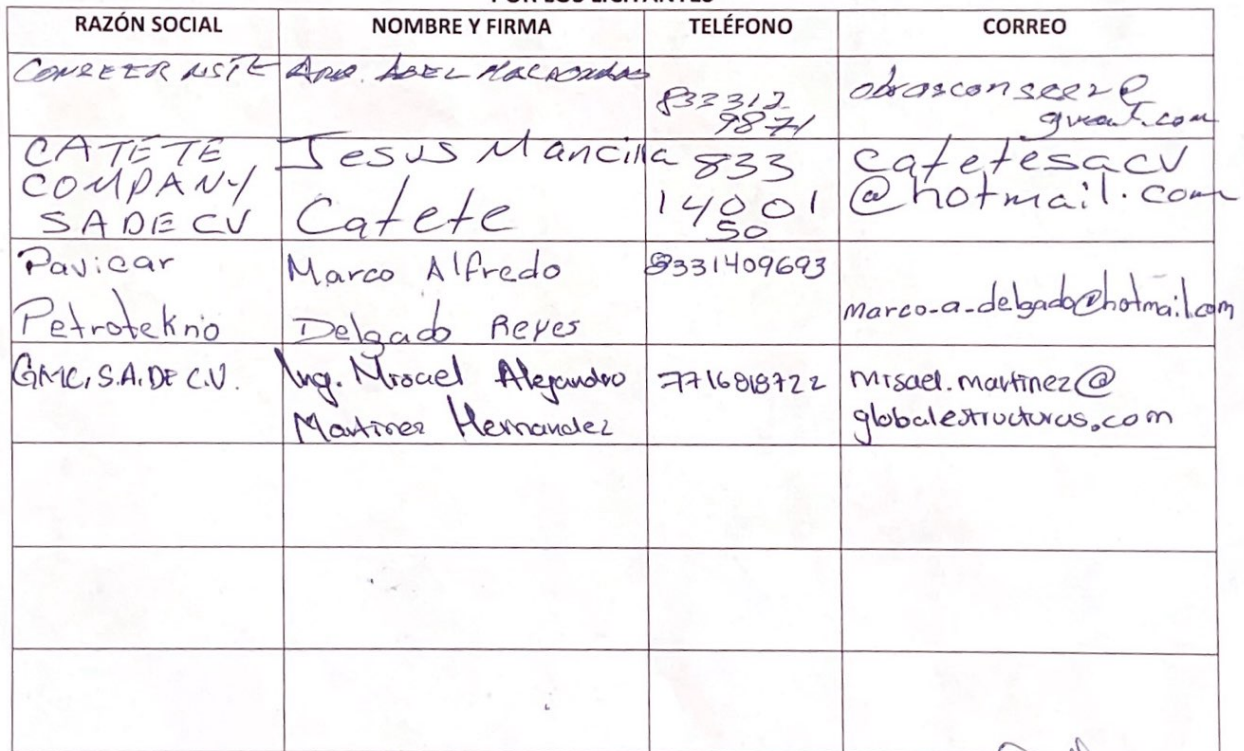 POR LOS LICITANTES
RAZÓN SOCIAL NOMBRE Y FIRMA TELÉFONO CORREO
ABEL
833312
9871
CATETE
COMPANY
SA DE CV
Jesus Mancilla
Catete
833
14001
50
catetesacv
@hotmail.com
Pavicar
Petrotekno
Marco Alfredo
Delgado Reyes
8331409693
marco-a-delgado@hotmail.com
GMC, S.A. DE C.V.
Ing. Misael Alejandro
Martinez Hernandez
misael.martinez@
globalestructuras.com